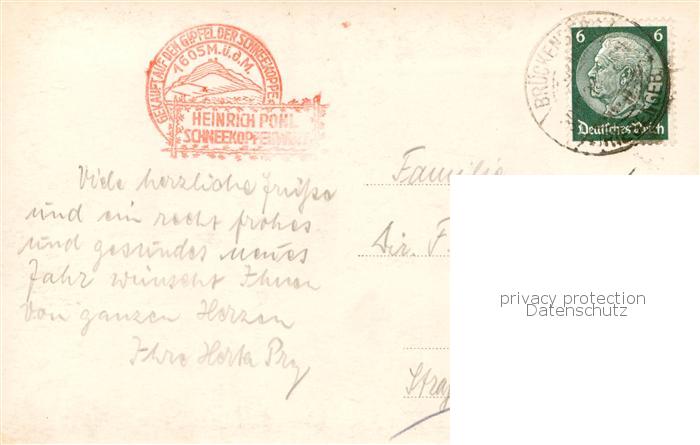 GEKAUFT AUF DEM GIPFEL DER SCHNEEKOPPE
1605 M.ü.d.M.
HEINRICH POHL
BRÜCKENB
6 6
Deutsches Reich
Viele herzliche Grüße
und ein recht frohes
und gesundes neues
Jahr wünscht Ihnen
von ganzen Herzen
Ihre Herta
Familie
Dir. F.
privacy protection
Datenschutz